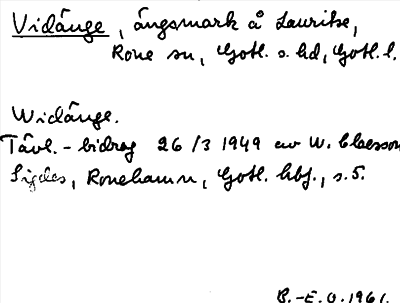 Vidänge, ängsmark å Lauritse,
Rone sn, Gotl. s. hd, Gotl. l.
Widänge.
Tävl.-bidrag 26/3 1949 av W. Claesson
Sigdes, Ronehamn, Gotl. hbf., s. 5.
B.-E. O. 1961.